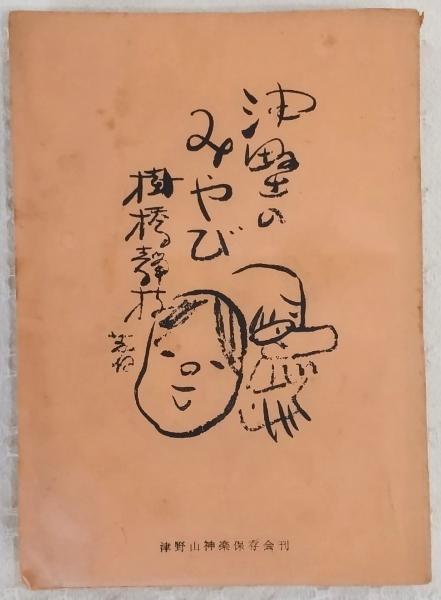 津野山の
みやび
樹橋静枝
津野山神楽保存会刊